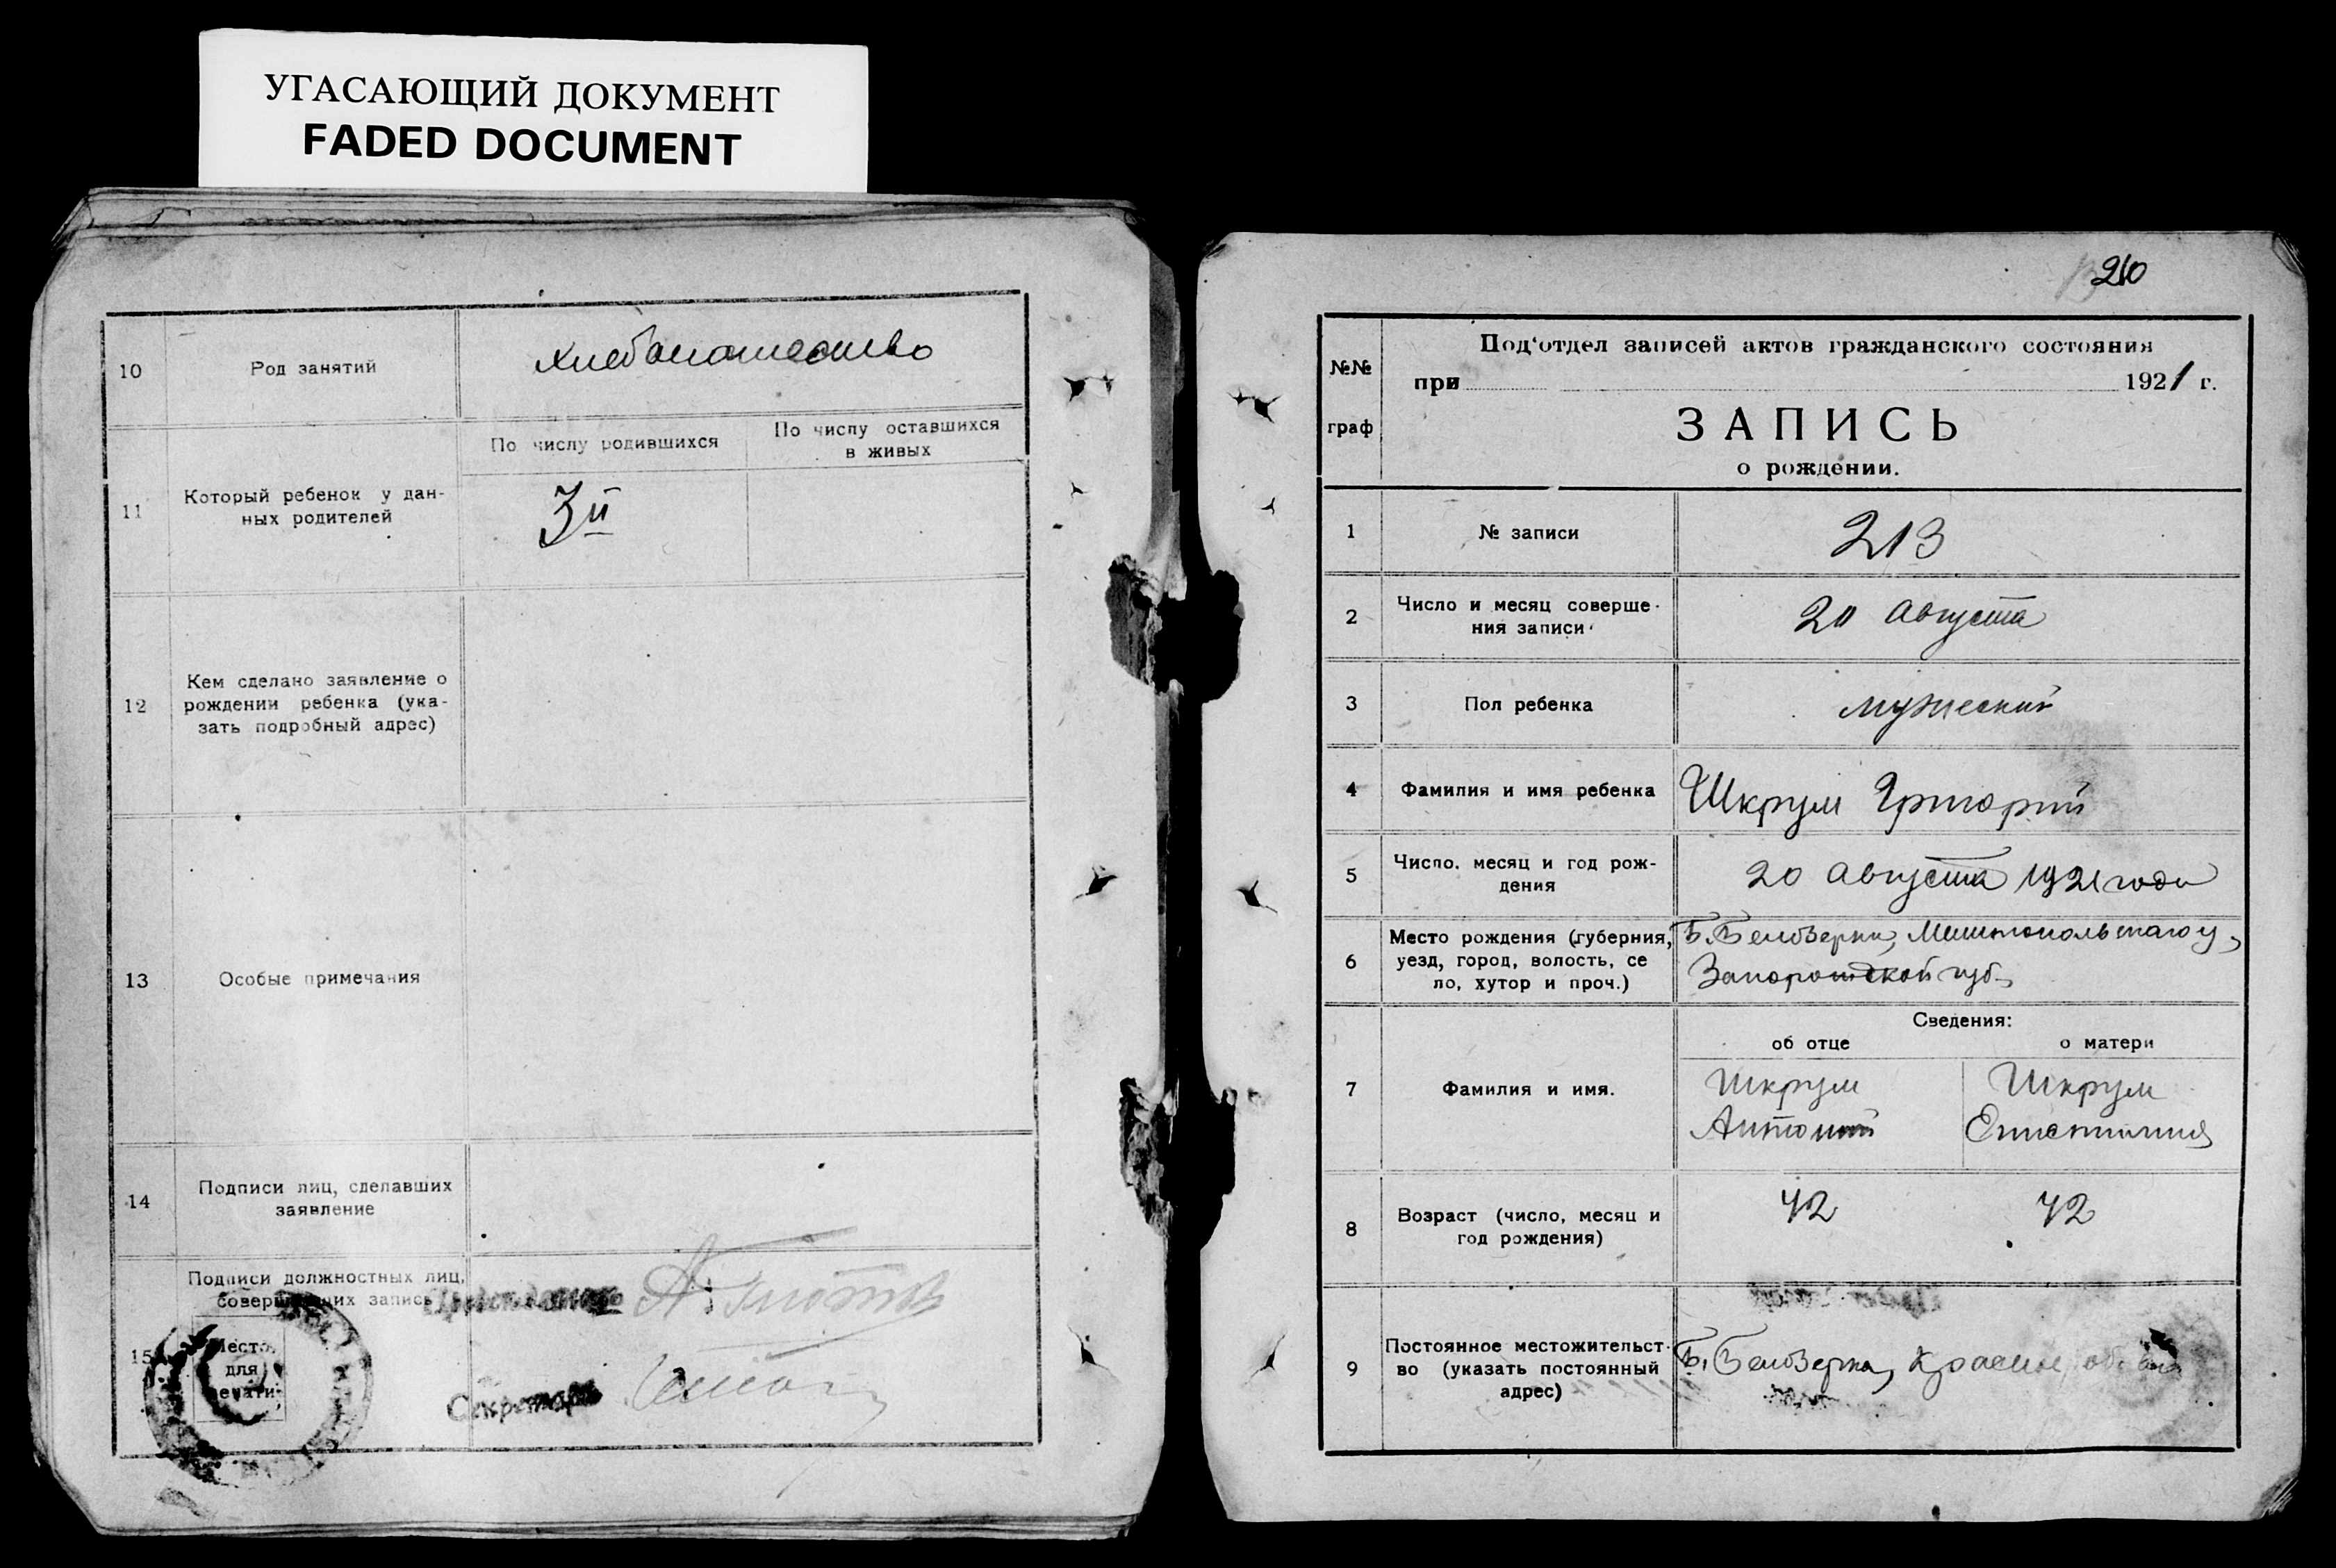 УГАСАЮЩИЙ ДОКУМЕНТ
FADED DOCUMENT
10
Род занятий
хлебопашество
11
Который ребенок у дан-
ных родителей
По числу родившихся
По числу оставшихся
в живых
3й
12
Кем сделано заявление о
рождении ребенка (ука-
зать подробный адрес)
13
Особые примечания
14
Подписи лиц, сделавших
заявление
15
Подписи должностных лиц,
совершивших запись
Место
для
печати
Секретарь
210
№№
граф
Под'отдел записей актов гражданского состояния
при 1921 г.
ЗАПИСЬ
о рождении.
1
№ записи
213
2
Число и месяц соверше-
ния записи
20 Августа
3
Пол ребенка
мужеский
4
Фамилия и имя ребенка
Шкрум Григорий
5
Число, месяц и год рож-
дения
20 Августа 1921 года
6
Место рождения (губерния,
уезд, город, волость, се
ло, хутор и проч.)
Б. Белозерка, у,
Запорожской губ.
Сведения:
об отце
о матери
7
Фамилия и имя.
Шкрум
Антоний
Шкрум
8
Возраст (число, месяц и
год рождения)
42
42
9
Постоянное местожительст-
во (указать постоянный
адрес)
Б. Белозерка,